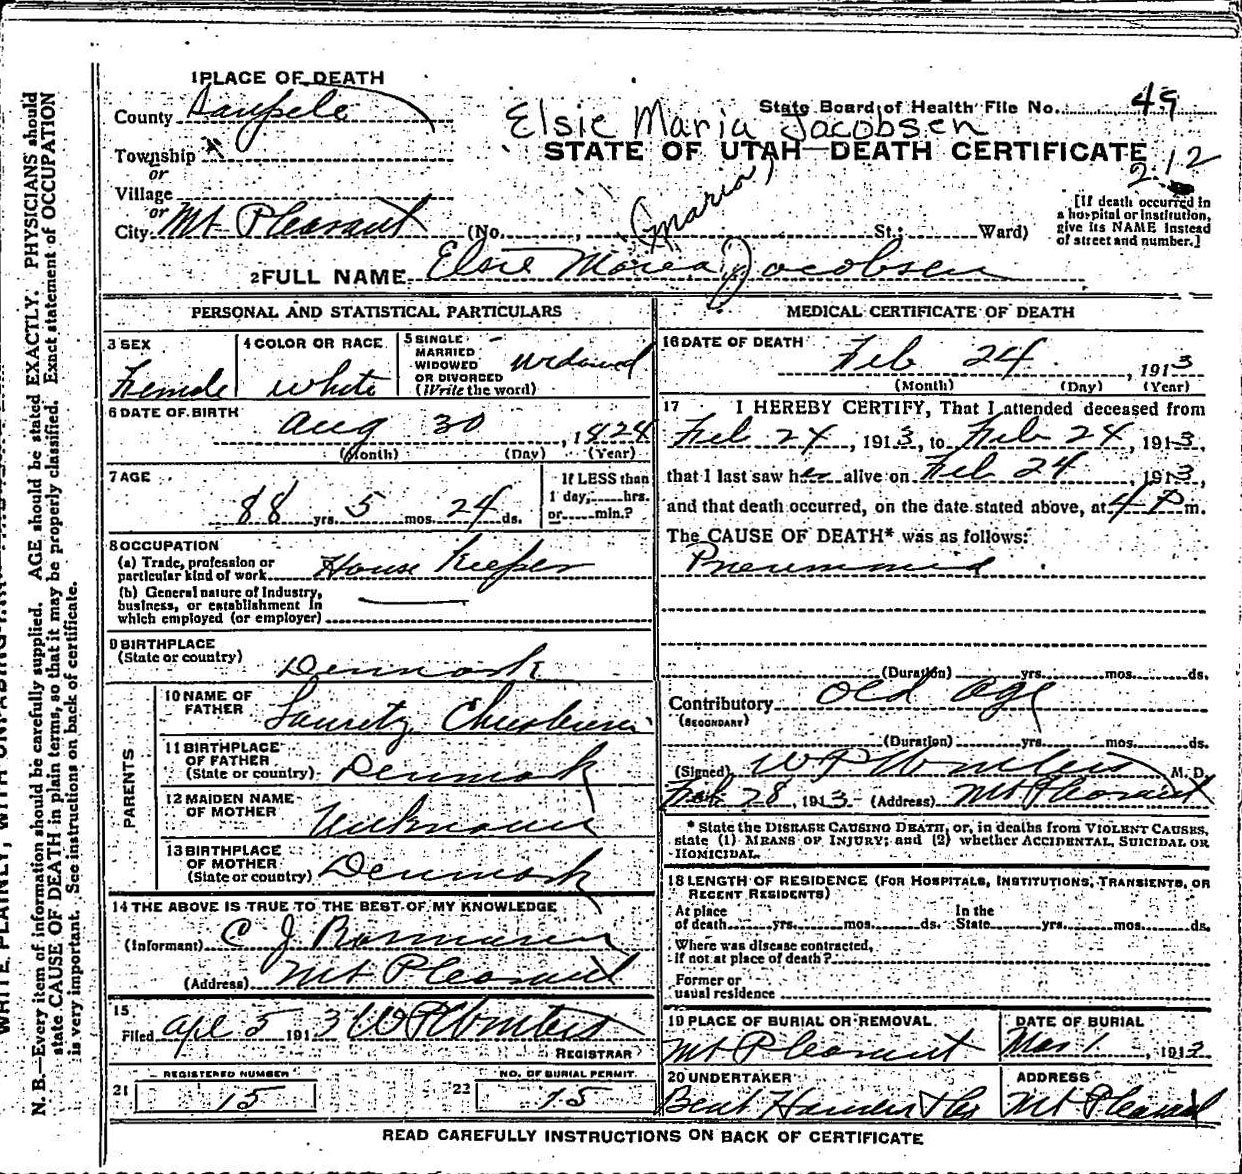 WRITE PLAINLY, WITH UNFADING
N. B.—Every item of information should be carefully supplied. AGE should be stated EXACTLY. PHYSICIANS should
state CAUSE OF DEATH in plain terms, so that it may be properly classified. Exact statement of OCCUPATION
is very important. See instructions on back of certificate.
1 PLACE OF DEATH
County Sanpete
Township
or
Village
or
City Mt Pleasant (No. St.; Ward)
State Board of Health File No. 49
Elsie Maria Jacobsen
STATE OF UTAH—DEATH CERTIFICATE
212
[If death occurred in
a hospital or institution,
give its NAME instead
of street and number.]
(Maria)
2 FULL NAME Elsie Maria Jacobsen
PERSONAL AND STATISTICAL PARTICULARS
3 SEX
Female
4 COLOR OR RACE
White
5 SINGLE
MARRIED
WIDOWED
OR DIVORCED
(Write the word)
Widowed
6 DATE OF BIRTH
Aug 30, 1824
(Month) (Day) (Year)
7 AGE
88 yrs. 5 mos. 24 ds.
If LESS than
1 day, hrs.
or min.?
8 OCCUPATION
(a) Trade, profession or
particular kind of work House Keeper
(b) General nature of Industry,
business, or establishment in
which employed (or employer)
9 BIRTHPLACE
(State or country)
Denmark
PARENTS
10 NAME OF
FATHER
Lauretz
11 BIRTHPLACE
OF FATHER
(State or country) Denmark
12 MAIDEN NAME
OF MOTHER
Unknown
13 BIRTHPLACE
OF MOTHER
(State or country) Denmark
14 THE ABOVE IS TRUE TO THE BEST OF MY KNOWLEDGE
(Informant) C J Rasmussen
(Address) Mt Pleasant
15
Filed Apl 5 1913 W P Winters
REGISTRAR
21 REGISTERED NUMBER
15
22 NO. OF BURIAL PERMIT
15
MEDICAL CERTIFICATE OF DEATH
16 DATE OF DEATH
Feb 24, 1913
(Month) (Day) (Year)
17 I HEREBY CERTIFY, That I attended deceased from
Feb 24, 1913, to Feb 24, 1913,
that I last saw her alive on Feb 24, 1913,
and that death occurred, on the date stated above, at 4 P m.
The CAUSE OF DEATH* was as follows:
Pneumonia
(Duration) yrs. mos. ds.
Contributory Old age
(SECONDARY)
(Duration) yrs. mos. ds.
(Signed) W P Winters M. D.
Feb 28, 1913 (Address) Mt Pleasant
* State the DISEASE CAUSING DEATH, or, in deaths from VIOLENT CAUSES,
state (1) MEANS OF INJURY; and (2) whether ACCIDENTAL, SUICIDAL OR
HOMICIDAL.
18 LENGTH OF RESIDENCE (FOR HOSPITALS, INSTITUTIONS, TRANSIENTS, OR
RECENT RESIDENTS)
At place
of death yrs. mos. ds.
In the
State yrs. mos. ds.
Where was disease contracted,
if not at place of death?
Former or
usual residence
19 PLACE OF BURIAL OR REMOVAL
Mt Pleasant
DATE OF BURIAL
Mar 1, 1913
20 UNDERTAKER
Bent Hansen
ADDRESS
Mt Pleasant
READ CAREFULLY INSTRUCTIONS ON BACK OF CERTIFICATE